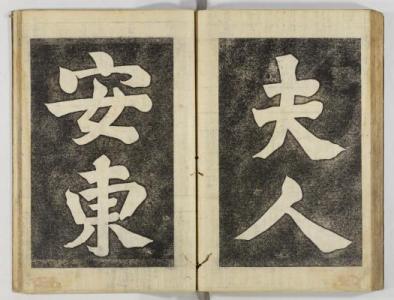 夫人
安東